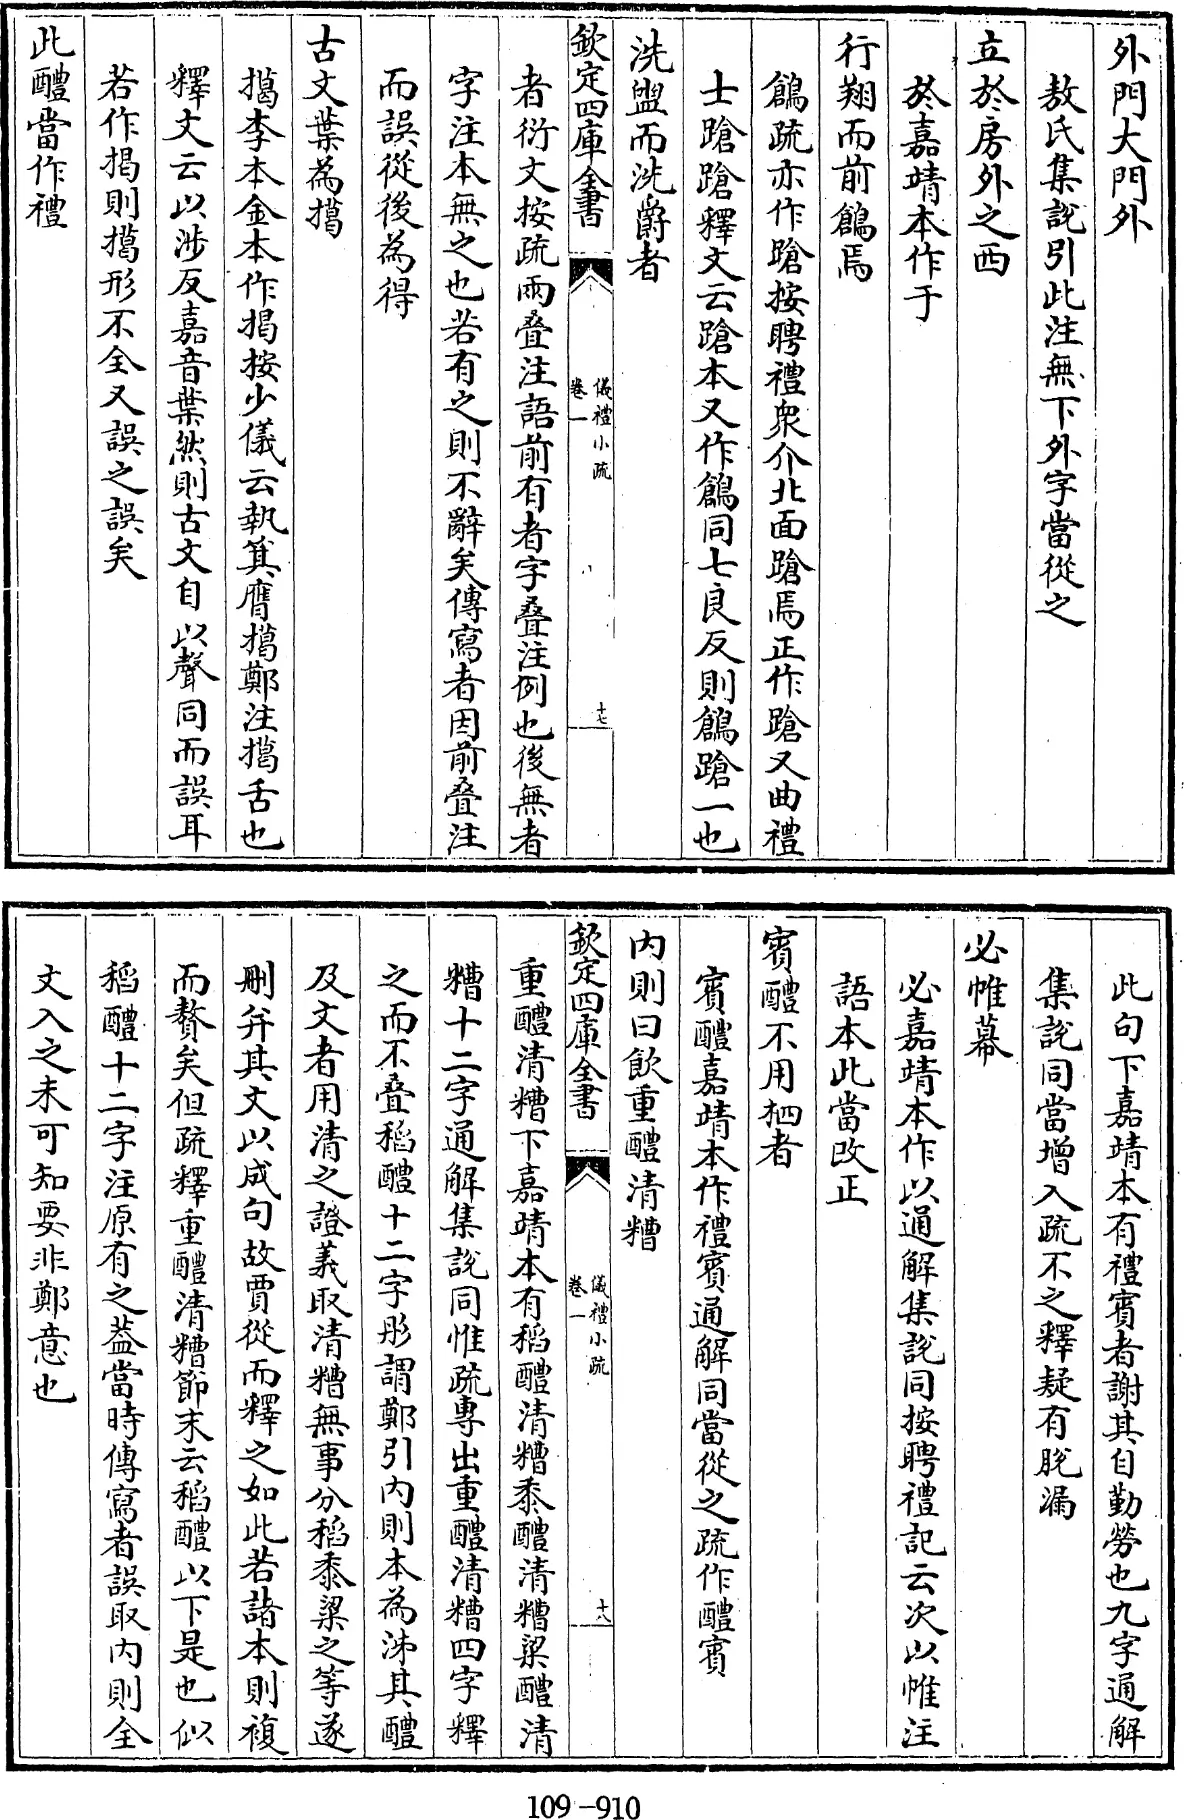 外門大門外
敖氏集說引此注無下外字當從之
立於房外之西
於嘉靖本作于
行翔而前鶬焉
鶬疏亦作蹌按聘禮衆介北面蹌焉正作蹌又曲禮
士蹌蹌釋文云蹌本又作鶬同七良反則鶬蹌一也
洗盥而洗爵者
欽定四庫全書
儀禮小疏
卷一
十七
者衍文按疏兩叠注語前有者字叠注例也後無者
字注本無之也若有之則不辭矣傳寫者因前叠注
而誤從後為得
古文葉為擖
擖李本金本作揭按少儀云執箕膺擖鄭注擖舌也
釋文云以涉反嘉音葉然則古文自以聲同而誤耳
若作揭則擖形不全又誤之誤矣
此醴當作禮
此句下嘉靖本有禮賓者謝其自勤勞也九字通解
集說同當增入疏不之釋疑有脫漏
必帷幕
必嘉靖本作以通解集說同按聘禮記云次以帷注
語本此當改正
賓醴不用柶者
賓醴嘉靖本作禮賓通解同當從之疏作醴賓
內則曰飲重醴清糟
欽定四庫全書
儀禮小疏
卷一
十八
重醴清糟下嘉靖本有稻醴清糟黍醴清糟粱醴清
糟十二字通解集說同惟疏專出重醴清糟四字釋
之而不叠稻醴十二字彤謂鄭引內則本為泲其醴
及文者用清之證義取清糟無事分稻黍粱之等遂
刪并其文以成句故賈從而釋之如此若諸本則複
而贅矣但疏釋重醴清糟節末云稻醴以下是也似
稻醴十二字注原有之葢當時傳寫者誤取內則全
文入之未可知要非鄭意也
109-910